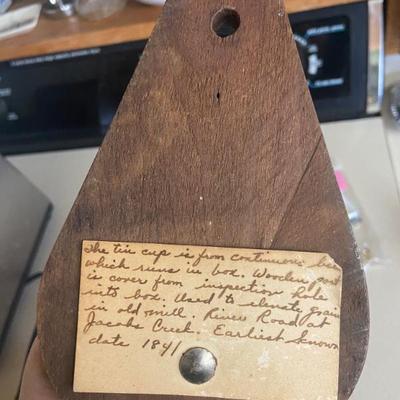 The tin cup is from continuous
which runs in box. Wooden
is cover from inspection hole
into box. Used to elevate grain
in old mill. River Road at
Jacobs Creek. Earliest known
date 1841